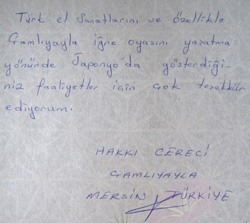 Türk el sanatlarını ve özellikle
Çamlıyayla iğne oyasını yaşatma
yönünde Japonya'da gösterdiği-
niz faaliyetler için çok teşekkür
ediyorum.
HAKKI CERECİ
ÇAMLIYAYLA
MERSİN TÜRKİYE